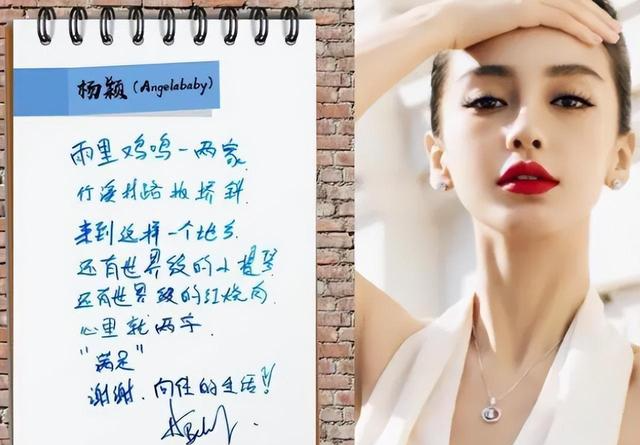 杨颖(Angelababy)
雨里鸡鸣一两家
竹溪村路板桥斜
来到这样一个地方
还有世界级的小提琴
还有世界级的红烧肉
心里就两字
"满足"
谢谢.向往的生活!!